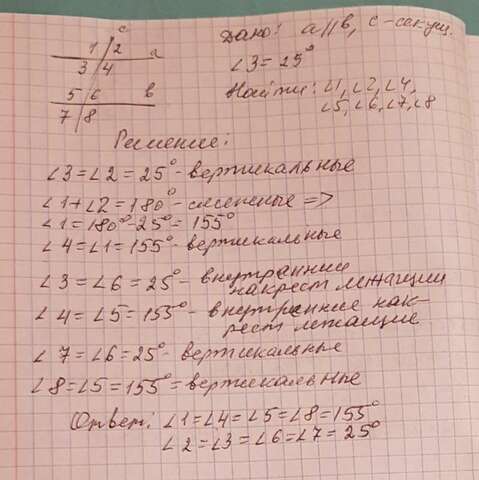 c
1 2 a
3 4
5 6 в
7 8
Дано: a||в, c-секущ.
∠3=25°
Найти: ∠1, ∠2, ∠4,
∠5, ∠6, ∠7, ∠8
Решение:
∠3=∠2=25°-вертикальные
∠1+∠2=180°-смежные =>
∠1=180°-25°=155°
∠4=∠1=155°-вертикальные
∠3=∠6=25°-внутранние
накрест лежащии
∠4=∠5=155°-внутринние нак-
рест лежащие
∠7=∠6=25°-вертикальные
∠8=∠5=155°=вертикальные
Ответ: ∠1=∠4=∠5=∠8=155°
∠2=∠3=∠6=∠7=25°